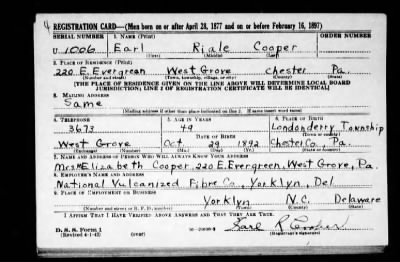 REGISTRATION CARD—(Men born on or after April 28, 1877 and on or before February 16, 1897)
SERIAL NUMBER 1. NAME (Print) ORDER NUMBER
U 1006 Earl Riale Cooper
(First) (Middle) (Last)
2. PLACE OF RESIDENCE (Print)
220 E. Evergreen West Grove Chester Pa.
(Number and street) (Town, township, village, or city) (County) (State)
[THE PLACE OF RESIDENCE GIVEN ON THE LINE ABOVE WILL DETERMINE LOCAL BOARD
JURISDICTION; LINE 2 OF REGISTRATION CERTIFICATE WILL BE IDENTICAL]
3. MAILING ADDRESS
Same
[Mailing address if other than place indicated on line 2. If same insert word same]
4. TELEPHONE 5. AGE IN YEARS 6. PLACE OF BIRTH
3673 49 Londonderry Township
DATE OF BIRTH (Town or county)
West Grove Oct 29 1892 Chester Co. Pa.
(Exchange) (Number) (Mo.) (Day) (Yr.) (State or country)
7. NAME AND ADDRESS OF PERSON WHO WILL ALWAYS KNOW YOUR ADDRESS
Mrs Elizabeth Cooper, 220 E. Evergreen, West Grove, Pa.
8. EMPLOYER'S NAME AND ADDRESS
National Vulcanized Fibre Co., Yorklyn, Del
9. PLACE OF EMPLOYMENT OR BUSINESS
Yorklyn N.C. Delaware
(Number and street or R. F. D. number) (Town) (County) (State)
I AFFIRM THAT I HAVE VERIFIED ABOVE ANSWERS AND THAT THEY ARE TRUE.
D. S. S. Form 1 Earl R Cooper
(Revised 4-1-42) (over) (Registrant's signature)